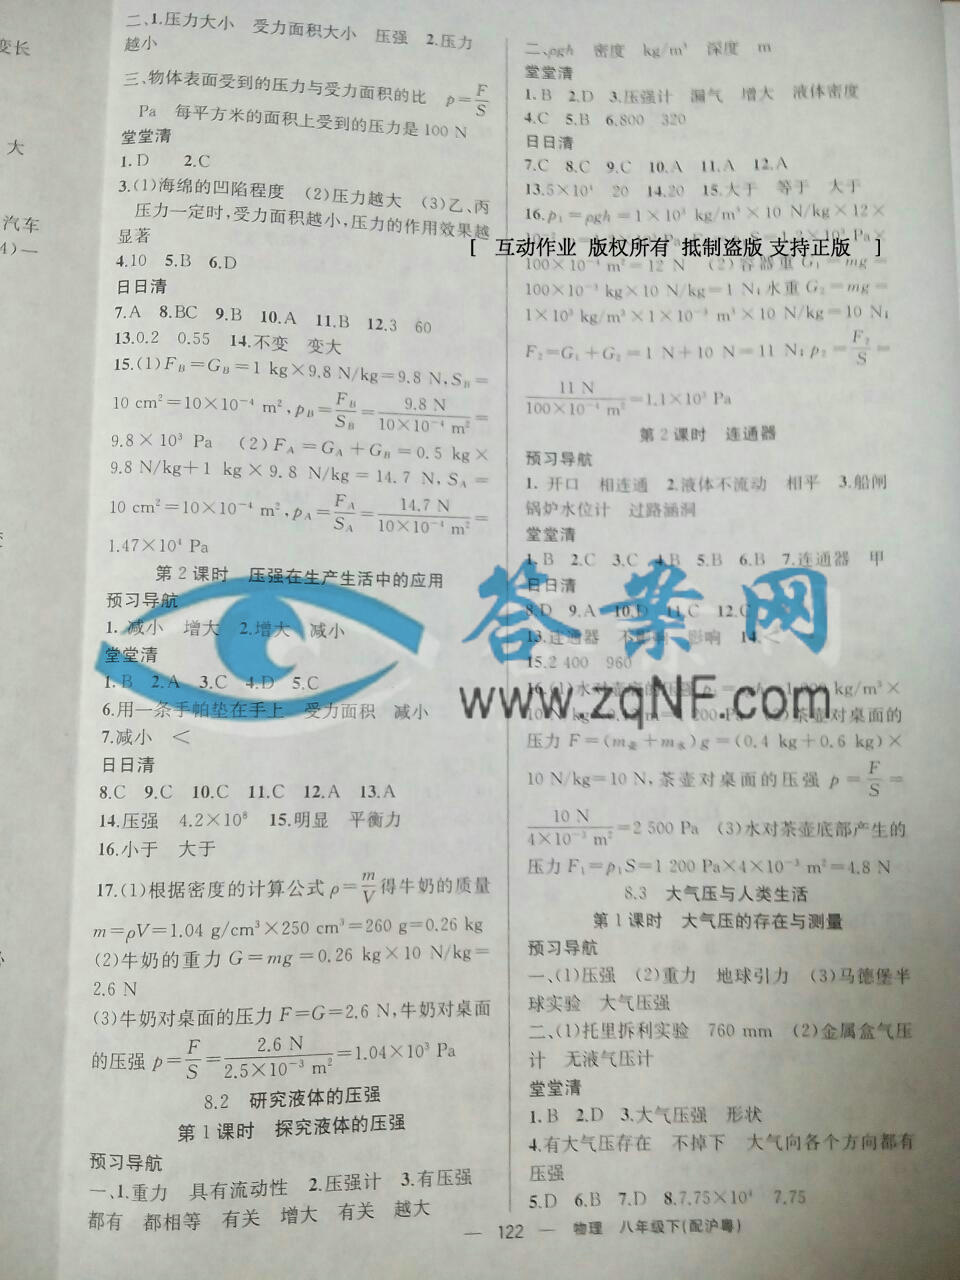 变长
大
汽车
4)—
二、1.压力大小 受力面积大小 压强 2.压力
越小
三、物体表面受到的压力与受力面积的比 p=F/S
Pa 每平方米的面积上受到的压力是100 N
堂堂清
1.D 2.C
3.(1)海绵的凹陷程度 (2)压力越大 (3)乙、丙
压力一定时,受力面积越小,压力的作用效果越
显著
4.10 5.B 6.D
日日清
7.A 8.BC 9.B 10.A 11.B 12.3 60
13.0.2 0.55 14.不变 变大
15.(1)F_B=G_B=1 kg×9.8 N/kg=9.8 N,S_B=
10 cm²=10×10⁻⁴ m²,p_B=F_B/S_B=9.8 N/10×10⁻⁴ m²=
9.8×10³ Pa (2)F_A=G_A+G_B=0.5 kg×
9.8 N/kg+1 kg×9.8 N/kg=14.7 N,S_A=
10 cm²=10×10⁻⁴ m²,p_A=F_A/S_A=14.7 N/10×10⁻⁴ m²=
1.47×10⁴ Pa
第2课时 压强在生产生活中的应用
预习导航
1.减小 增大 2.增大 减小
堂堂清
1.B 2.A 3.C 4.D 5.C
6.用一条手帕垫在手上 受力面积 减小
7.减小 <
日日清
8.C 9.C 10.C 11.C 12.A 13.A
14.压强 4.2×10⁸ 15.明显 平衡力
16.小于 大于
17.(1)根据密度的计算公式ρ=m/V得牛奶的质量
m=ρV=1.04 g/cm³×250 cm³=260 g=0.26 kg
(2)牛奶的重力G=mg=0.26 kg×10 N/kg=
2.6 N
(3)牛奶对桌面的压力F=G=2.6 N,牛奶对桌面
的压强p=F/S=2.6 N/2.5×10⁻³ m²=1.04×10³ Pa
8.2 研究液体的压强
第1课时 探究液体的压强
预习导航
一、1.重力 具有流动性 2.压强计 3.有压强
都有 都相等 有关 增大 有关 越大
二、ρgh 密度 kg/m³ 深度 m
堂堂清
1.B 2.D 3.压强计 漏气 增大 液体密度
4.C 5.B 6.800 320
日日清
7.C 8.C 9.C 10.A 11.A 12.A
13.5×10⁴ 20 14.20 15.大于 等于 大于
16.p₁=ρgh=1×10³ kg/m³×10 N/kg×12×
[ 互动作业 版权所有 抵制盗版 支持正版 ]
100×10⁻⁴ m²=12 N (2)容器重G₁=mg=
100×10⁻³ kg×10 N/kg=1 N;水重G₂=mg=
1×10³ kg/m³×1×10⁻³ m³×10 N/kg=10 N;
F₂=G₁+G₂=1 N+10 N=11 N;p₂=F₂/S=
11 N/100×10⁻⁴ m²=1.1×10³ Pa
第2课时 连通器
预习导航
1.开口 相连通 2.液体不流动 相平 3.船闸
锅炉水位计 过路涵洞
堂堂清
1.B 2.C 3.C 4.B 5.B 6.B 7.连通器 甲
日日清
8.D 9.A 10.D 11.C 12.C
13.连通器 不影响 影响 14.<
15.2 400 960
答案网
www.zqNF.com
茶壶对桌面的
压力F=(m壶+m水)g=(0.4 kg+0.6 kg)×
10 N/kg=10 N,茶壶对桌面的压强 p=F/S=
10 N/4×10⁻³ m²=2 500 Pa (3)水对茶壶底部产生的
压力F₁=p₁S=1 200 Pa×4×10⁻³ m²=4.8 N
8.3 大气压与人类生活
第1课时 大气压的存在与测量
预习导航
一、(1)压强 (2)重力 地球引力 (3)马德堡半
球实验 大气压强
二、(1)托里拆利实验 760 mm (2)金属盒气压
计 无液气压计
堂堂清
1.B 2.D 3.大气压强 形状
4.有大气压存在 不掉下 大气向各个方向都有
压强
5.D 6.B 7.D 8.7.75×10⁴ 7.75
— 122 — 物理 八年级下(配沪粤)